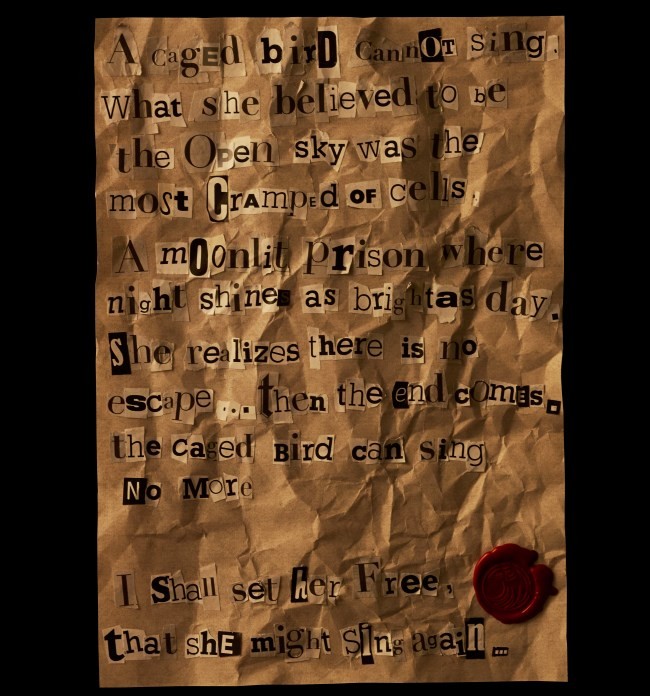 A cagEd birD CannOT Sing.
What she believed to be
the Open sky was the
most CRAmpEd OF cells.
A mOOnlit prison where
night shines as bright as day.
She realizes there is no
escape... then the end comes.
the caged Bird can sing
No More
I Shall set her Free,
that shE might SIng again...